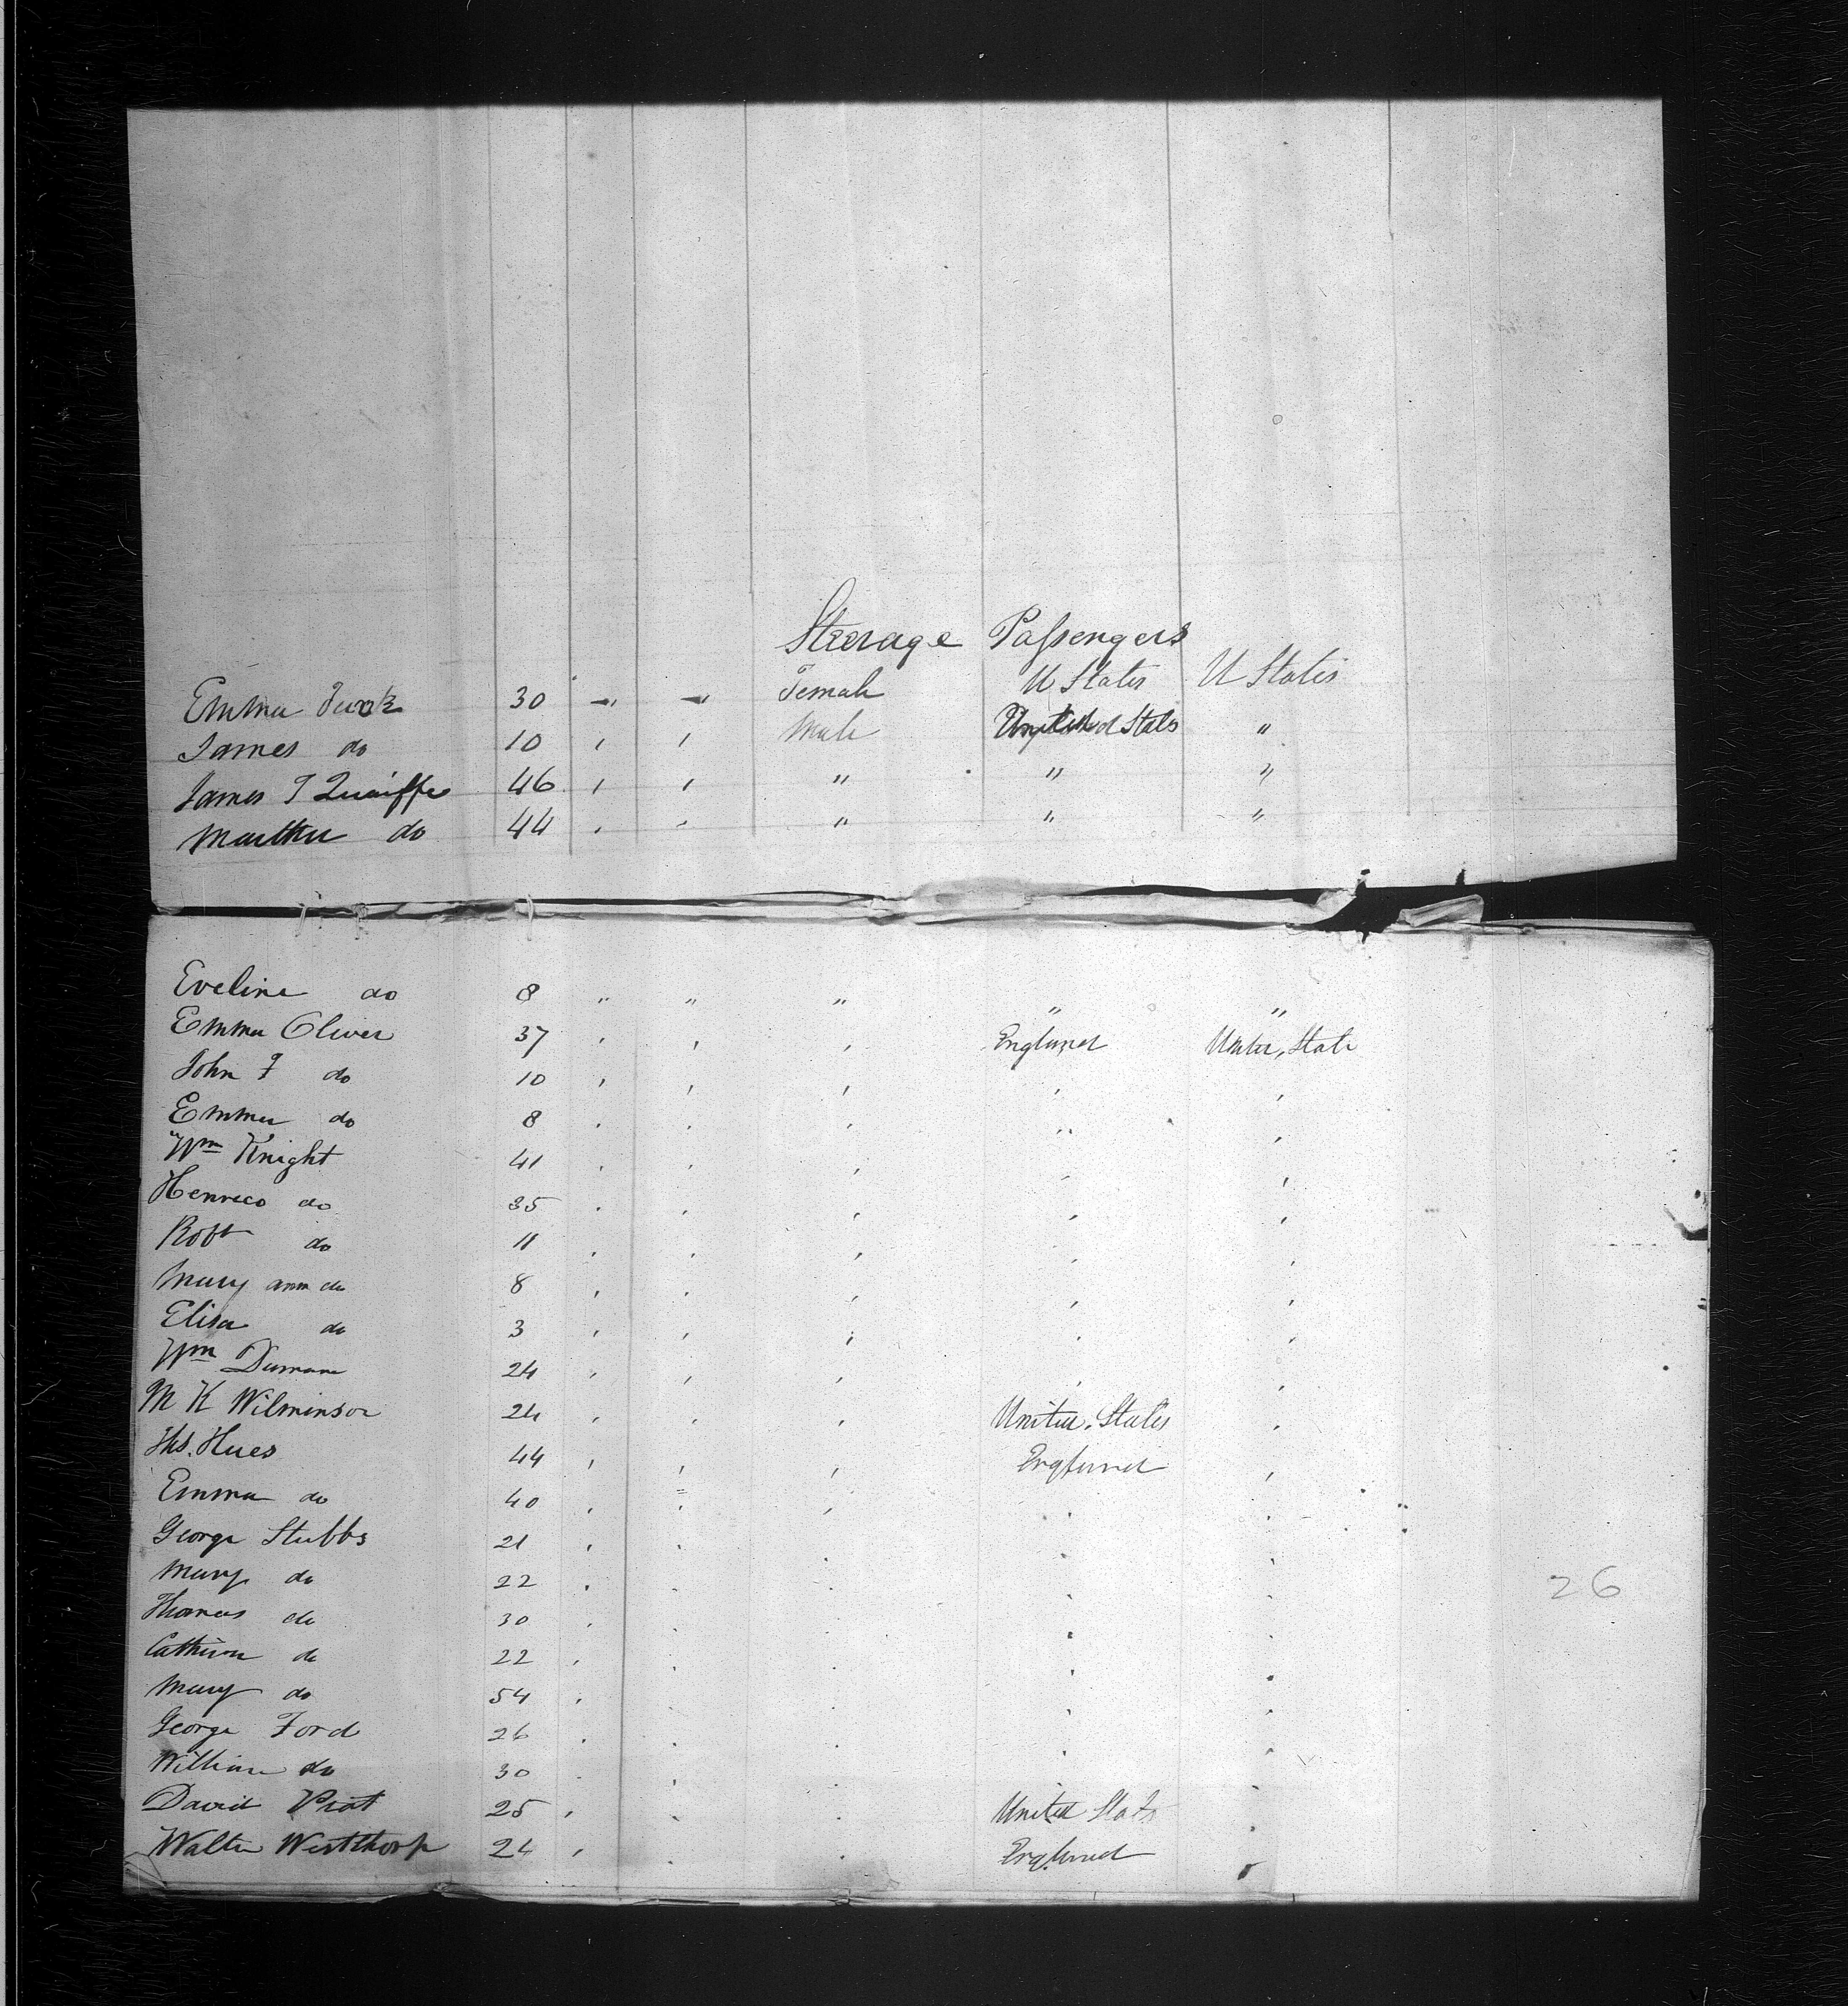 Steerage Passengers
Emma Turk 30 " " Female U States U States
James do 10 " " Male United States "
James T Quaiffe 46 " " " " "
Martha do 44 " " " " "
Eveline do 8 " " " " "
Emma Oliver 37 " " " England United State
John F do 10 " " " " "
Emma do 8 " " " " "
Wm Knight 41 " " " " "
do 35 " " " " "
Robt do 11 " " " " "
Mary ann do 8 " " " " "
Elisa do 3 " " " " "
Wm 24 " " " " "
M K Wilminson 24 " " " United States "
Ths. Hues 44 " " " England "
Emma do 40 " " " " "
George Stubbs 21 " " " " "
Mary do 22 " " " " "
Thomas do 30 " " " " "
Catherine do 22 " " " " "
Mary do 54 " " " " "
George Ford 26 " " " " "
William do 30 " " " " "
David 25 " " " United States "
Walter Westthorp 24 " " " England "
26